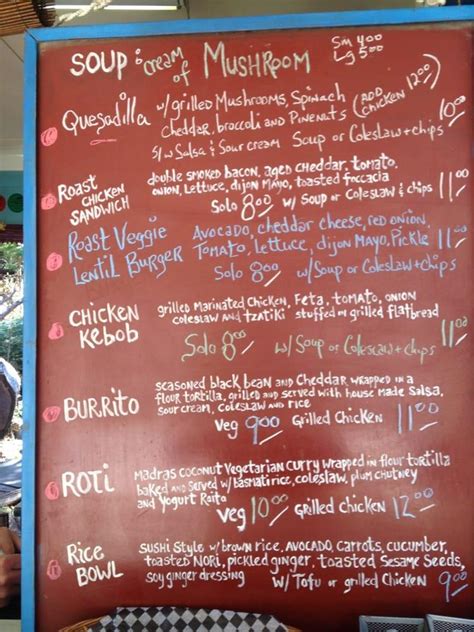 SOUP: cream of MUSHROOM Sm 4.00
Lg 5.00
Quesadilla w/grilled Mushrooms, Spinach (ADD CHICKEN 12.00)
Cheddar, broccoli and Pinenuts 10.00
S/w Salsa & Sour cream Soup or Coleslaw + chips
Roast CHICKEN SANDWICH
double smoked bacon, aged cheddar, tomato,
onion, Lettuce, dijon Mayo, toasted foccacia 11.00
Solo 8.00 w/ Soup or Coleslaw & chips
Roast Veggie Lentil Burger
Avocado, cheddar cheese, red onion,
Tomato, lettuce, dijon Mayo, Pickle 11.00
Solo 8.00 w/Soup or Coleslaw + Chips
CHICKEN KEBOB
grilled Marinated Chicken, Feta, tomato, onion
coleslaw and tzatiki stuffed in grilled flatbread 11.00
Solo 8.00 w/ Soup or Coleslaw + chips
BURRITO
seasoned black bean and Cheddar wrapped in a
flour tortilla, grilled and served with house made Salsa,
sour cream, coleslaw and rice
Veg 9.00 Grilled Chicken 11.00
ROTI
Madras coconut Vegetarian curry wrapped in flour tortilla
baked and served w/basmati rice, coleslaw, plum chutney
and Yogurt Raita
Veg 10.00 grilled chicken 12.00
Rice BOWL
SUSHI Style w/brown rice, AVOCADO, Carrots, cucumber,
toasted NORI, pickled ginger, toasted Sesame Seeds,
soy ginger dressing w/ Tofu or grilled Chicken 9.00